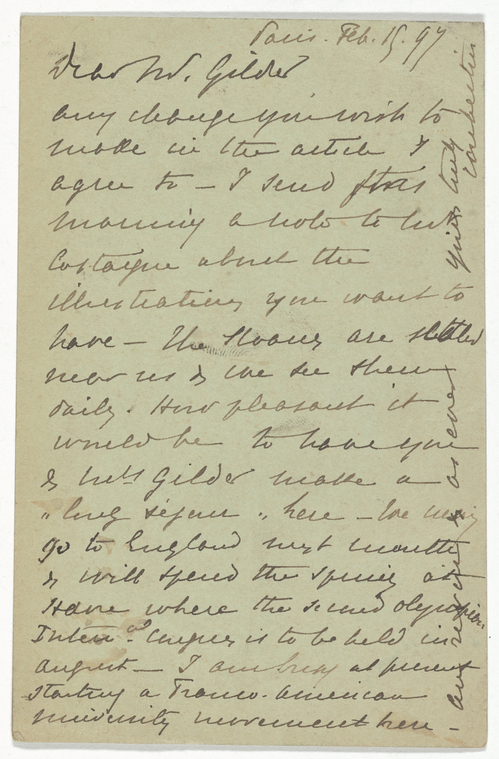 Paris. Feb. 15. 97
Dear Mr. Gilder
any change you wish to
make in the article I
agree to — I send this
morning a note to Mr
Castaigne about the
illustrations you want to
have — The Sloanes are settled
near us & we see them
daily. How pleasant it
would be to have you
& Mrs Gilder make a
"long séjour" here — We may
go to England next month
& will spend the spring at
Havre where the second olympian
Intern.al congress is to be held in
august — I am busy at present
starting a Franco-American
university movement here —
and remaining as ever
yours truly
Coubertin